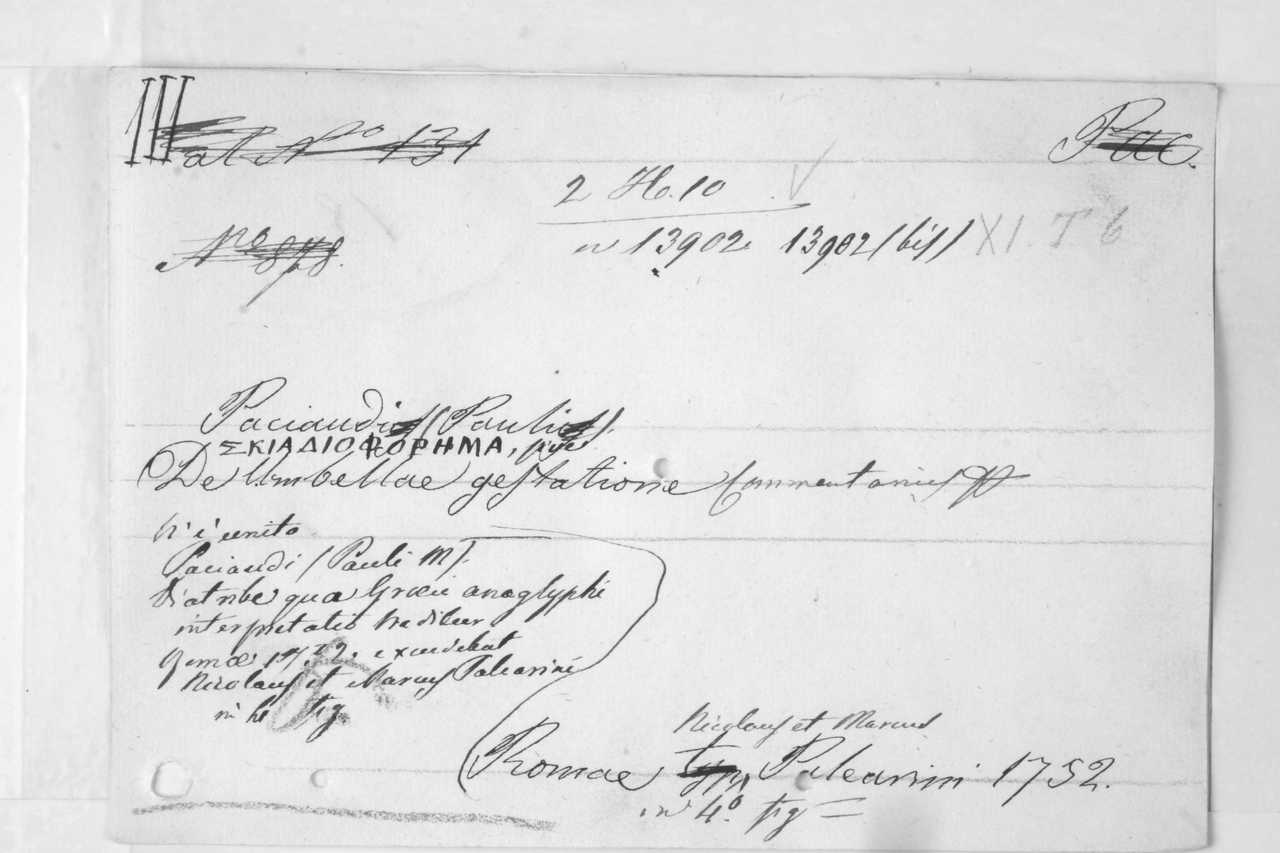 III
at No 131
Pac.
2 Ho. 10
No 878.
n 13902 13902 (bis) XI. T 6
Paciaudi (Pauli)
ΣΚΙΑΔΙΟΦΟΡΗΜΑ, sive
De Umbellae gestatione Commentarius
Vi è unito
Paciaudi (Pauli M).
Diatribe qua Graeci anaglyphi
interpretatio traditur
Romae 1752. excudebat
Nicolaus et Marcus Palearini
in 4o fig
Nicolaus et Marcus
Romae Palearini 1752.
in 4o. fig